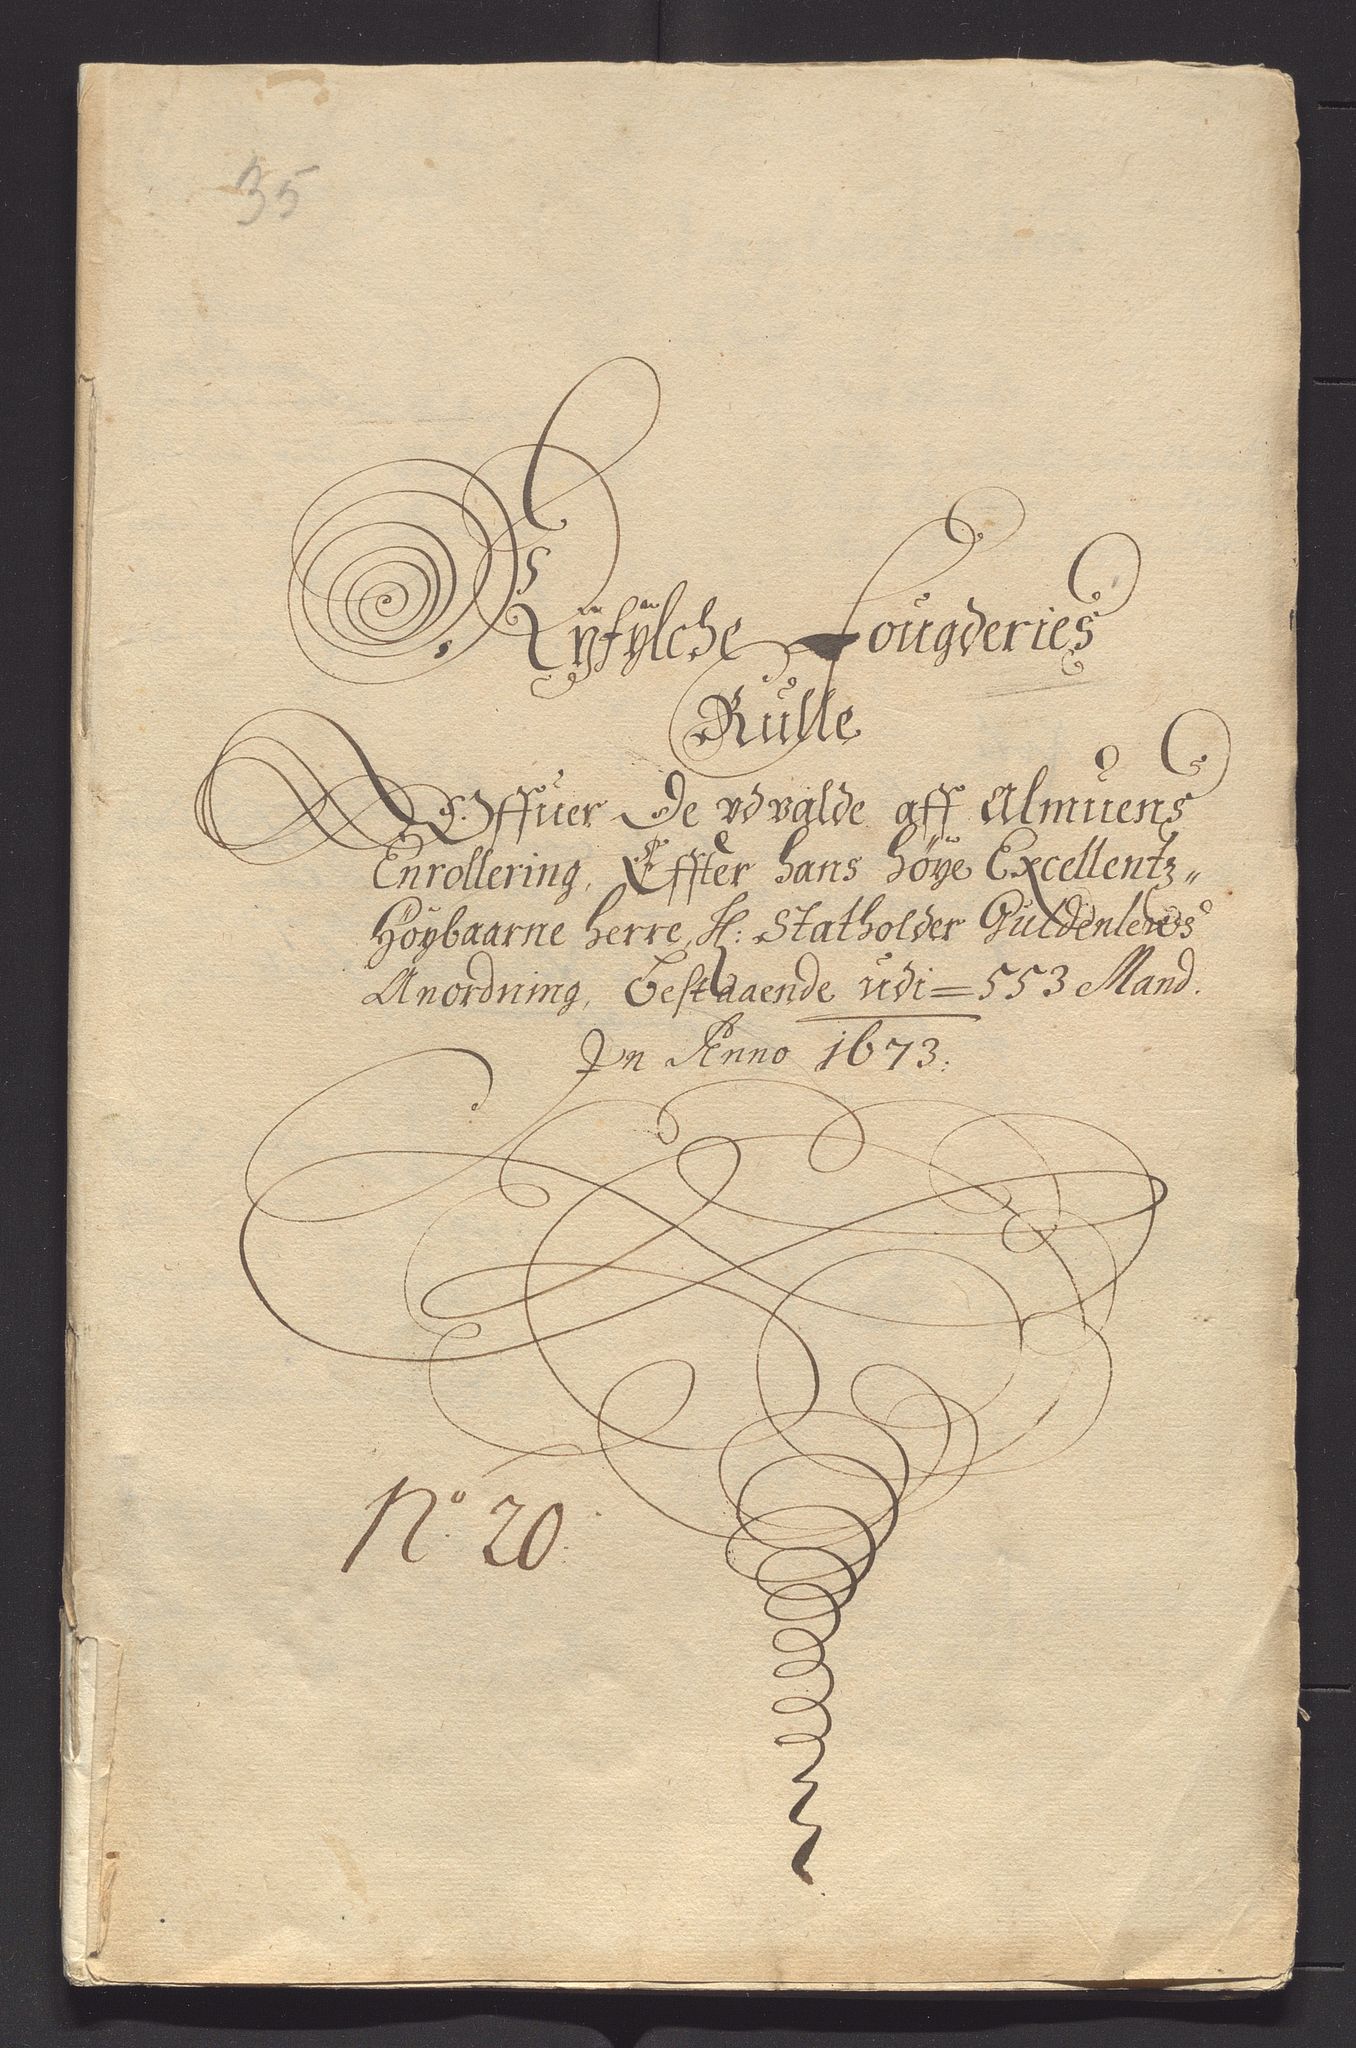 35
Ryfylche Fougderies
Rulle
Offuer De vdvalde aff Almuens
Enrollering, Effter hans höye Excellentz„
Höybaarne herre, H: Statholder Guldenlewes
Anordning, bestaaende udi = 553 Mand.
In Anno 1673:
No. 20.